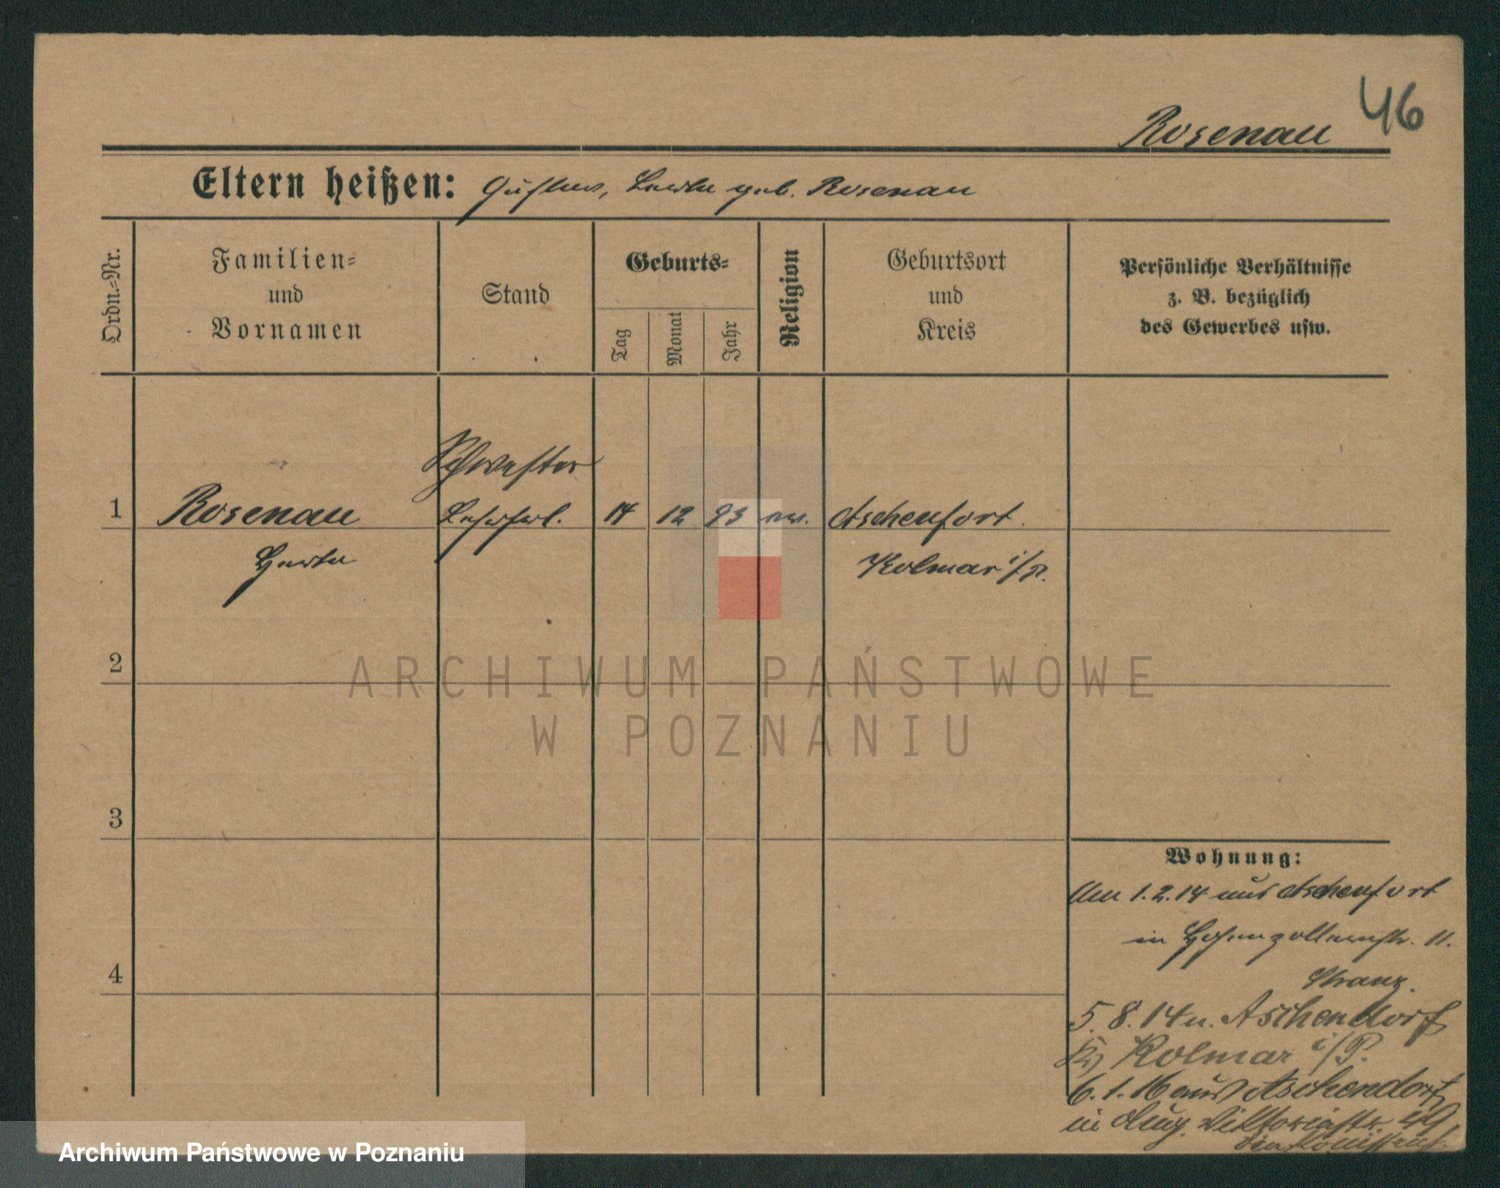 46
Rosenau
Eltern heißen: Gustav, Berta geb. Rosenau
Ordn.-Nr.
Familien-
und
Vornamen
Stand
Geburts-
Tag
Monat
Jahr
Religion
Geburtsort
und
Kreis
Persönliche Verhältnisse
z. B. bezüglich
des Gewerbes usw.
Schwester
1 Rosenau 12 93 ev. Aschenfort
Kolmar i/P.
2
3
4
Wohnung:
Am 1.2.14 aus Aschenfort
in Hohenzollernstr. 11.
5.8.14 n. Aschendorf
Kolmar i/P.
6.1.16 aus Aschendorf
in Viktoriastr.
ARCHIWUM PAŃSTWOWE
W POZNANIU
Archiwum Państwowe w Poznaniu